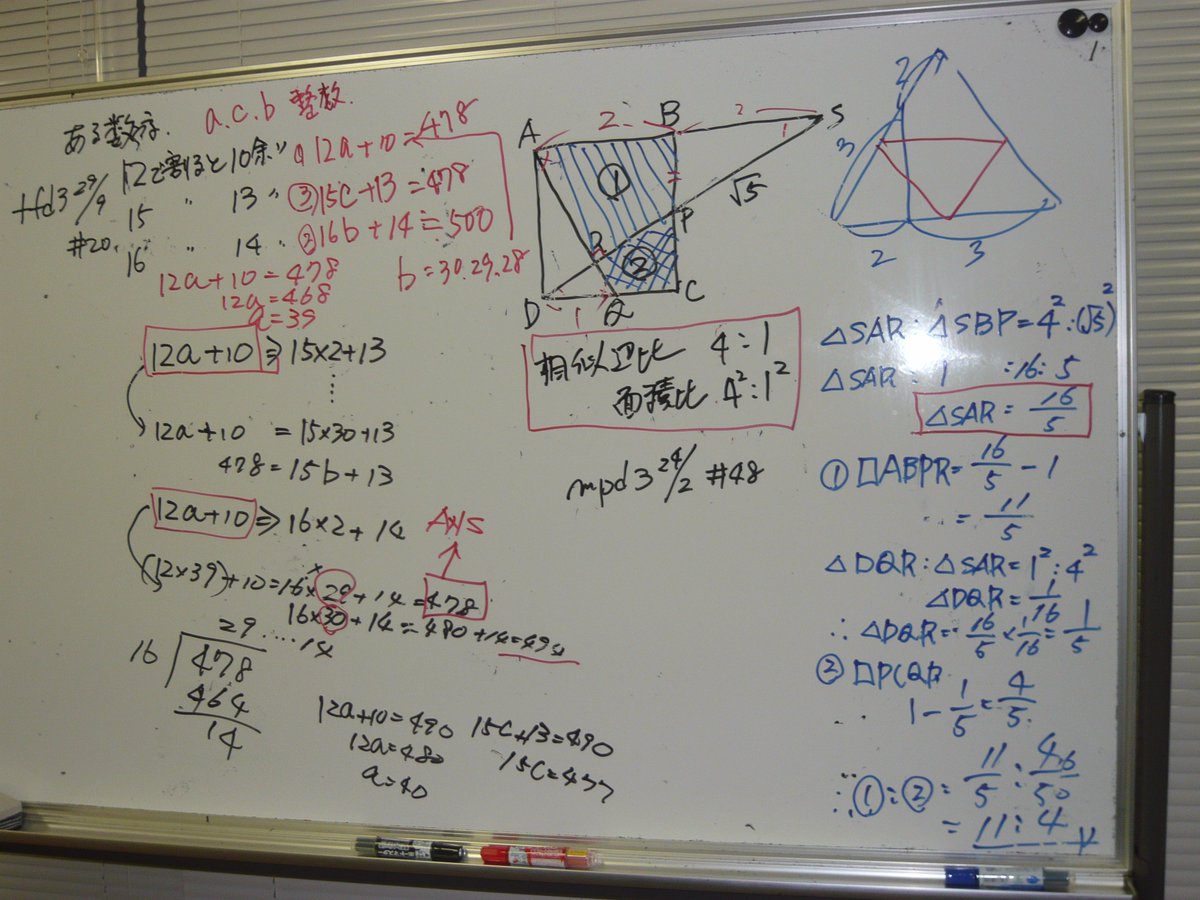 ある数字. a.c.b 整数.
Hfd3 29/9 12で割ると10余〃 ① 12a+10=478
15 〃 13〃 ③ 15c+13=478
#20. 16 〃 14〃 ② 16b+14=500
12a+10=478 b=30.29.28
12a=468
a=39
12a+10 ⩾ 15×2+13
⋮
12a+10 = 15×30+13
478=15b+13
12a+10 ⩾ 16×2+14
Ans
(12×39)+10=16×29+14=478
16×30+14=480+14=494
29....14
16 478
464
14
12a+10=490
12a=480
a=40
15c+13=490
15c=477
A 2 B 2 S
1
① √5
P
R ②
D 1 Q C
相似辺比 4:1
面積比 4²:1²
mpd3 24/2 #48
1
2
3
2 3
△SAR:△SBP=4²:(√5)²
△SAR:1 :16:5
△SAR=16/5
① □ABPR=16/5-1
=11/5
△DQR:△SAR=1²:4²
△DQR=1/16
∴△DQR=16/5×1/16=1/5
② □PCQR
1-1/5=4/5
∴①:②=11/5:
=11:4